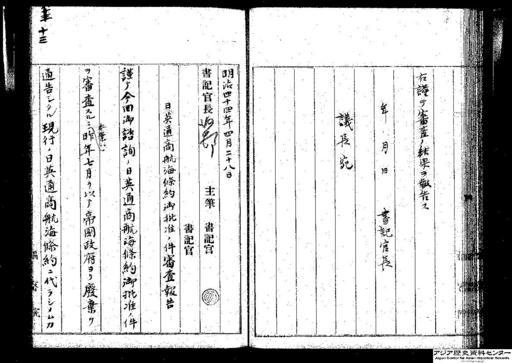 右謹テ審査ノ結果ヲ報告ス
年 月 日 書記官長
議長宛
明治四十四年四月二十八日
書記官長 主筆 書記官
書記官
日英通商航海條約御批准ノ件審査報告
謹テ今回御諮詢ノ日英通商航海條約御批准ノ件
ヲ審査スルニ本條約ハ昨年七月ヲ以テ帝國政府ヨリ廢棄ヲ
通告シタル現行ノ日英通商航海條約ニ代ラシメムカ
アジア歴史資料センター
Japan Center for Asian Historical Records